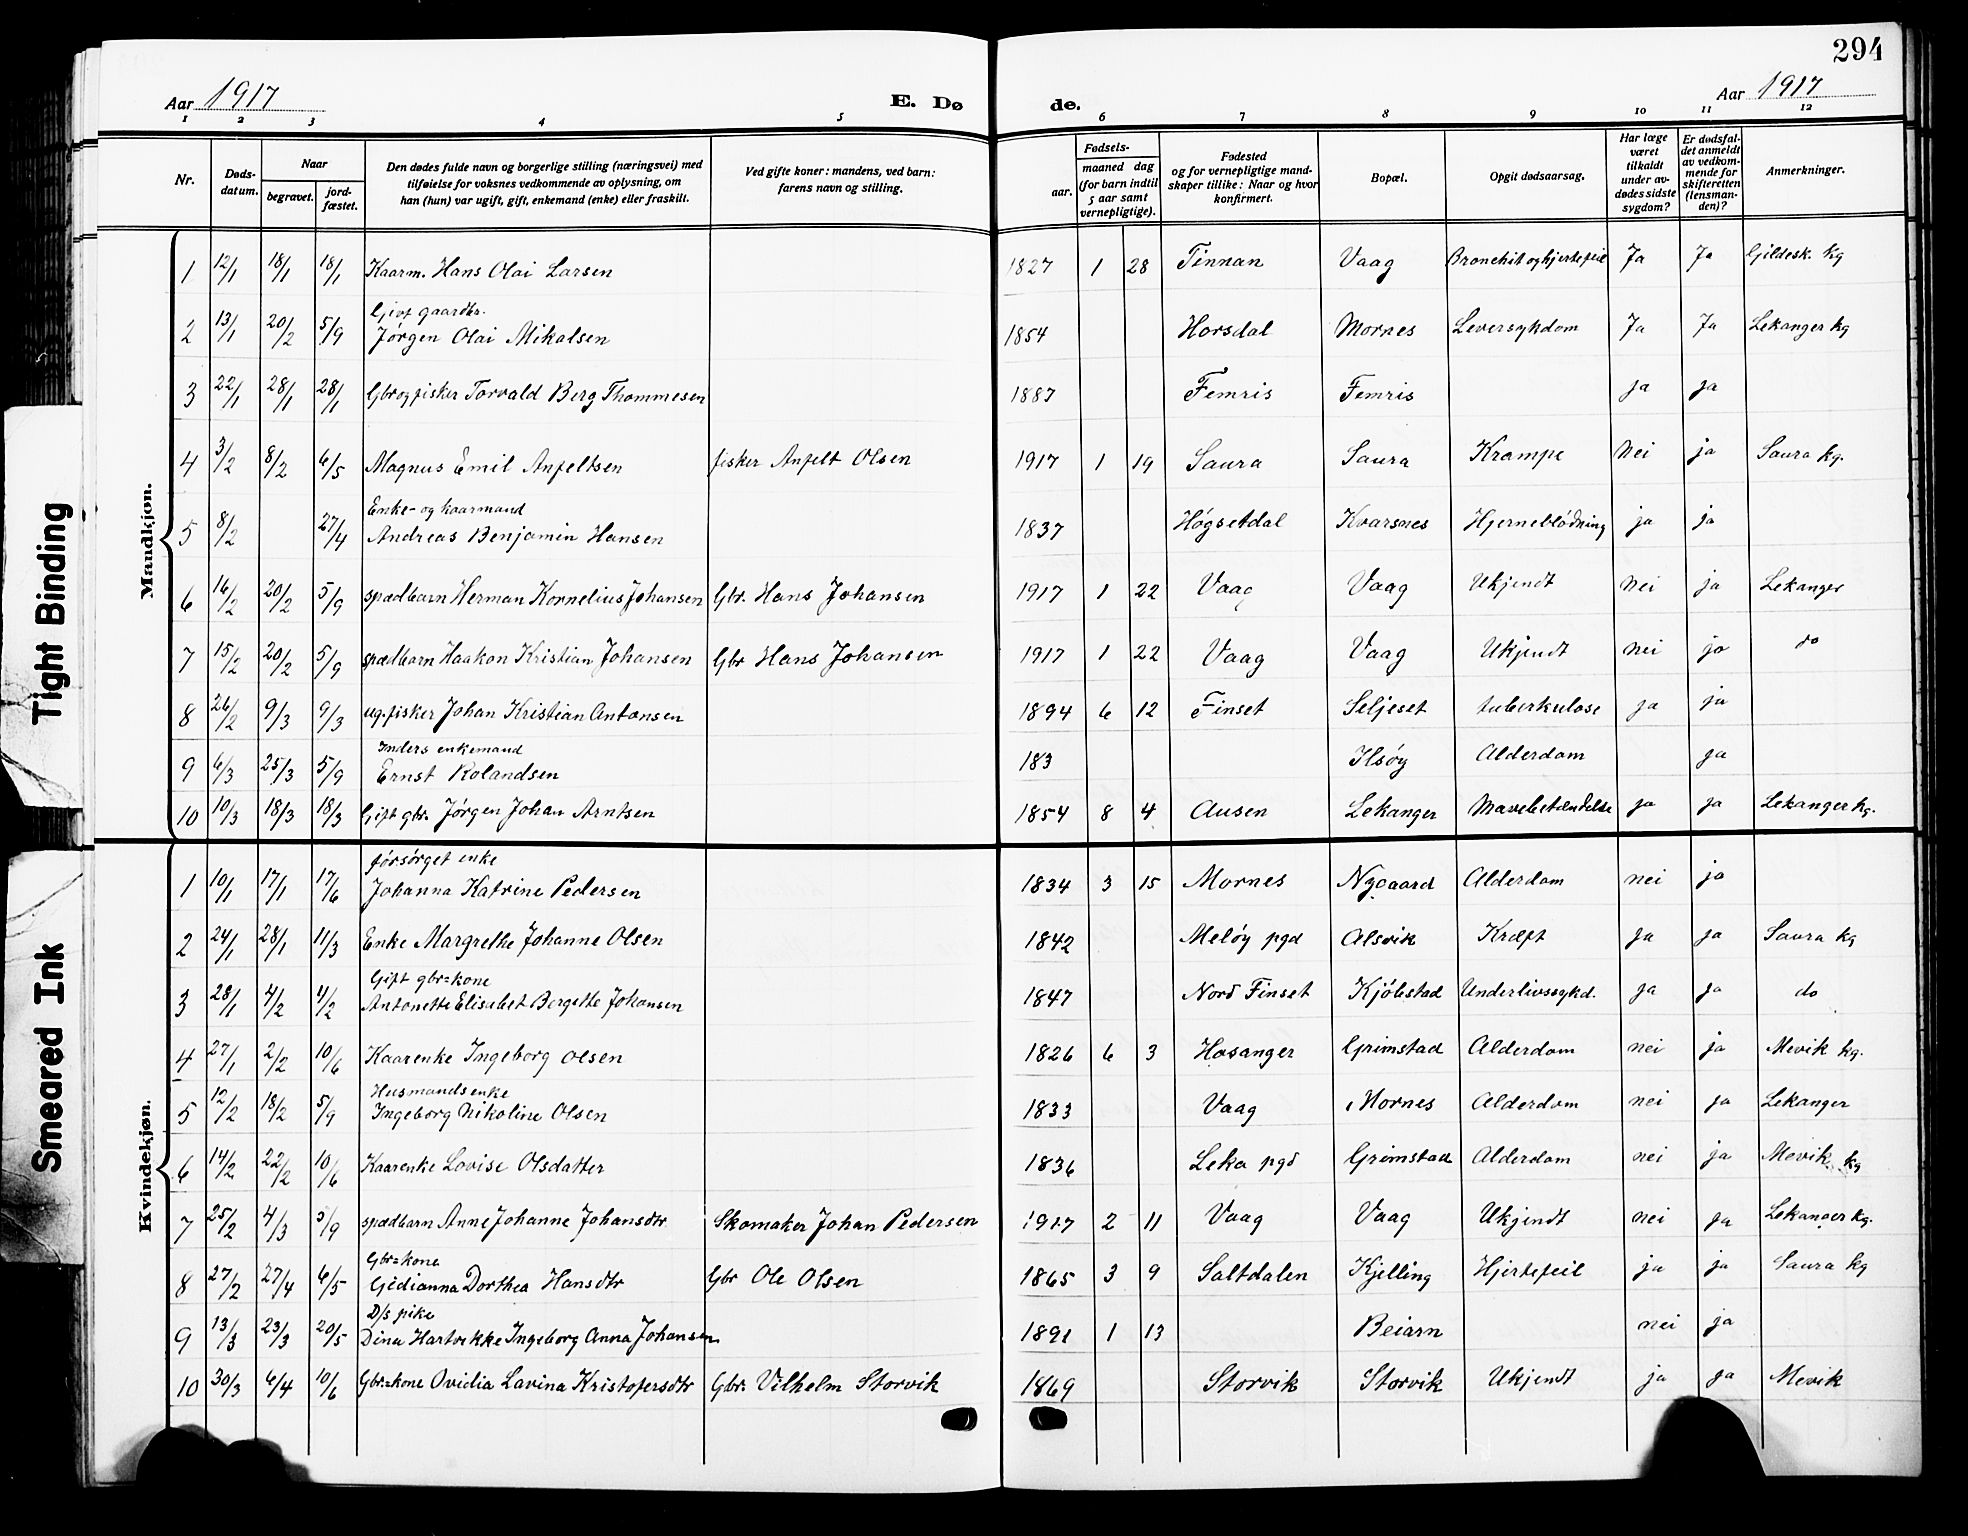 294
Aar 1917
E. Dø
de.
Aar 1917
1 2 3 4 5 6 7 8 9 10 11 12
Nr.
Døds-
datum.
Naar
begravet.
jord-
fæstet.
Den dødes fulde navn og borgerlige stilling (næringsvei) med
tilføielse for voksnes vedkommende av oplysning, om
han (hun) var ugift, gift, enkemand (enke) eller fraskilt.
Ved gifte koner: mandens, ved barn:
farens navn og stilling.
Fødsels-
aar.
maaned dag
(for barn indtil
5 aar samt
vernepligtige).
Fødested
og for vernepligtige mand-
skaper tillike: Naar og hvor
konfirmert.
Bopæl.
Opgit dødsaarsag.
Har læge
været
tilkaldt
under av-
dødes sidste
sygdom?
Er dødsfal-
det anmeldt
av vedkom-
mende for
skifteretten
(lensman-
den)?
Anmerkninger.
Mandkjøn.
1 12/1 18/1 18/1 Kaarm. Hans Olai Larsen 1827 1 28 Finnan Vaag Bronchit og hjertefeil Ja Ja Gildesk. kg
Gift gaardbr.
2 13/1 20/2 5/9 Jørgen Olai Mikalsen 1854 Horsdal Mornes Leversykdom Ja Ja Lekanger kg
3 22/1 28/1 28/1 Gbr og fisker Torvald Berg Thommesen 1887 Femris Femris ja ja
4 3/2 8/2 6/5 Magnus Emil Anfeltsen fisker Anfelt Olsen 1917 1 19 Saura Saura Krampe Nei ja Saura kg.
Enke- og kaarmand
5 8/2 27/4 Andreas Benjamin Hansen 1837 Høgsetdal Kvarsnes Hjerneblødning ja ja
6 16/2 20/2 5/9 spædbarn Herman Kornelius Johansen Gbr. Hans Johansen 1917 1 22 Vaag Vaag Ukjendt nei ja Lekanger
7 15/2 20/2 5/9 spædbarn Haakon Kristian Johansen Gbr Hans Johansen 1917 1 22 Vaag Vaag Ukjendt nei ja do
8 26/2 9/3 9/3 ug. fisker Johan Kristian Antonsen 1894 6 12 Finset Seljeset tuberkulose ja ja
Inders enkemand
9 6/3 25/3 5/9 Ernst Rolandsen 183 Ilsøy Alderdom ja
10 10/3 18/3 18/3 Gift gbr. Jørgen Johan Arntsen 1854 8 4 Ausen Lekanger Mavebetændelse ja ja Lekanger kg.
Kvindekjøn.
forsørget enke
1 10/1 17/1 17/6 Johanna Katrine Pedersen 1834 3 15 Mornes Nygaard Alderdom nei ja
2 24/1 28/1 11/3 Enke Margrethe Johanne Olsen 1842 Meløy pgd Alsvik Kræft ja ja Saura kg
Gift gbr=kone
3 28/1 4/2 4/2 Antonette Elisabet Bergette Johansen 1847 Nord Finset Kjøbstad Underlivssykd. ja ja do
4 27/1 2/2 10/6 Kaarenke Ingeborg Olsen 1826 6 3 Hosanger Grimstad Alderdom nei ja Mevik kg.
Husmandsenke
5 12/2 18/2 5/9 Ingeborg Nikoline Olsen 1833 Vaag Mornes Alderdom nei ja Lekanger
6 14/2 22/2 10/6 Kaarenke Lovise Olsdatter 1836 Leka pgd Grimstad Alderdom nei ja Mevik kg
7 25/2 4/3 5/9 spædbarn Anne Johanne Johansdtr Skomaker Johan Pedersen 1917 2 11 Vaag Vaag Ukjendt nei ja Lekanger kg.
Gbr=kone
8 27/2 27/4 6/5 Gedianna Dorthea Hansdtr Gbr Ole Olsen 1865 3 9 Saltdalen Kjelling Hjertefeil ja ja Saura kg
D/s pike
9 13/3 23/3 20/5 Dina Hartvikke Ingeborg Anna Johansen 1891 1 13 Beiarn nei ja
10 30/3 6/4 10/6 Gbr=kone Ovidia Lavina Kristofersdtr Gbr. Vilhelm Storvik 1869 Storvik Storvik Ukjendt ja ja Mevik
Tight Binding
Smeared Ink